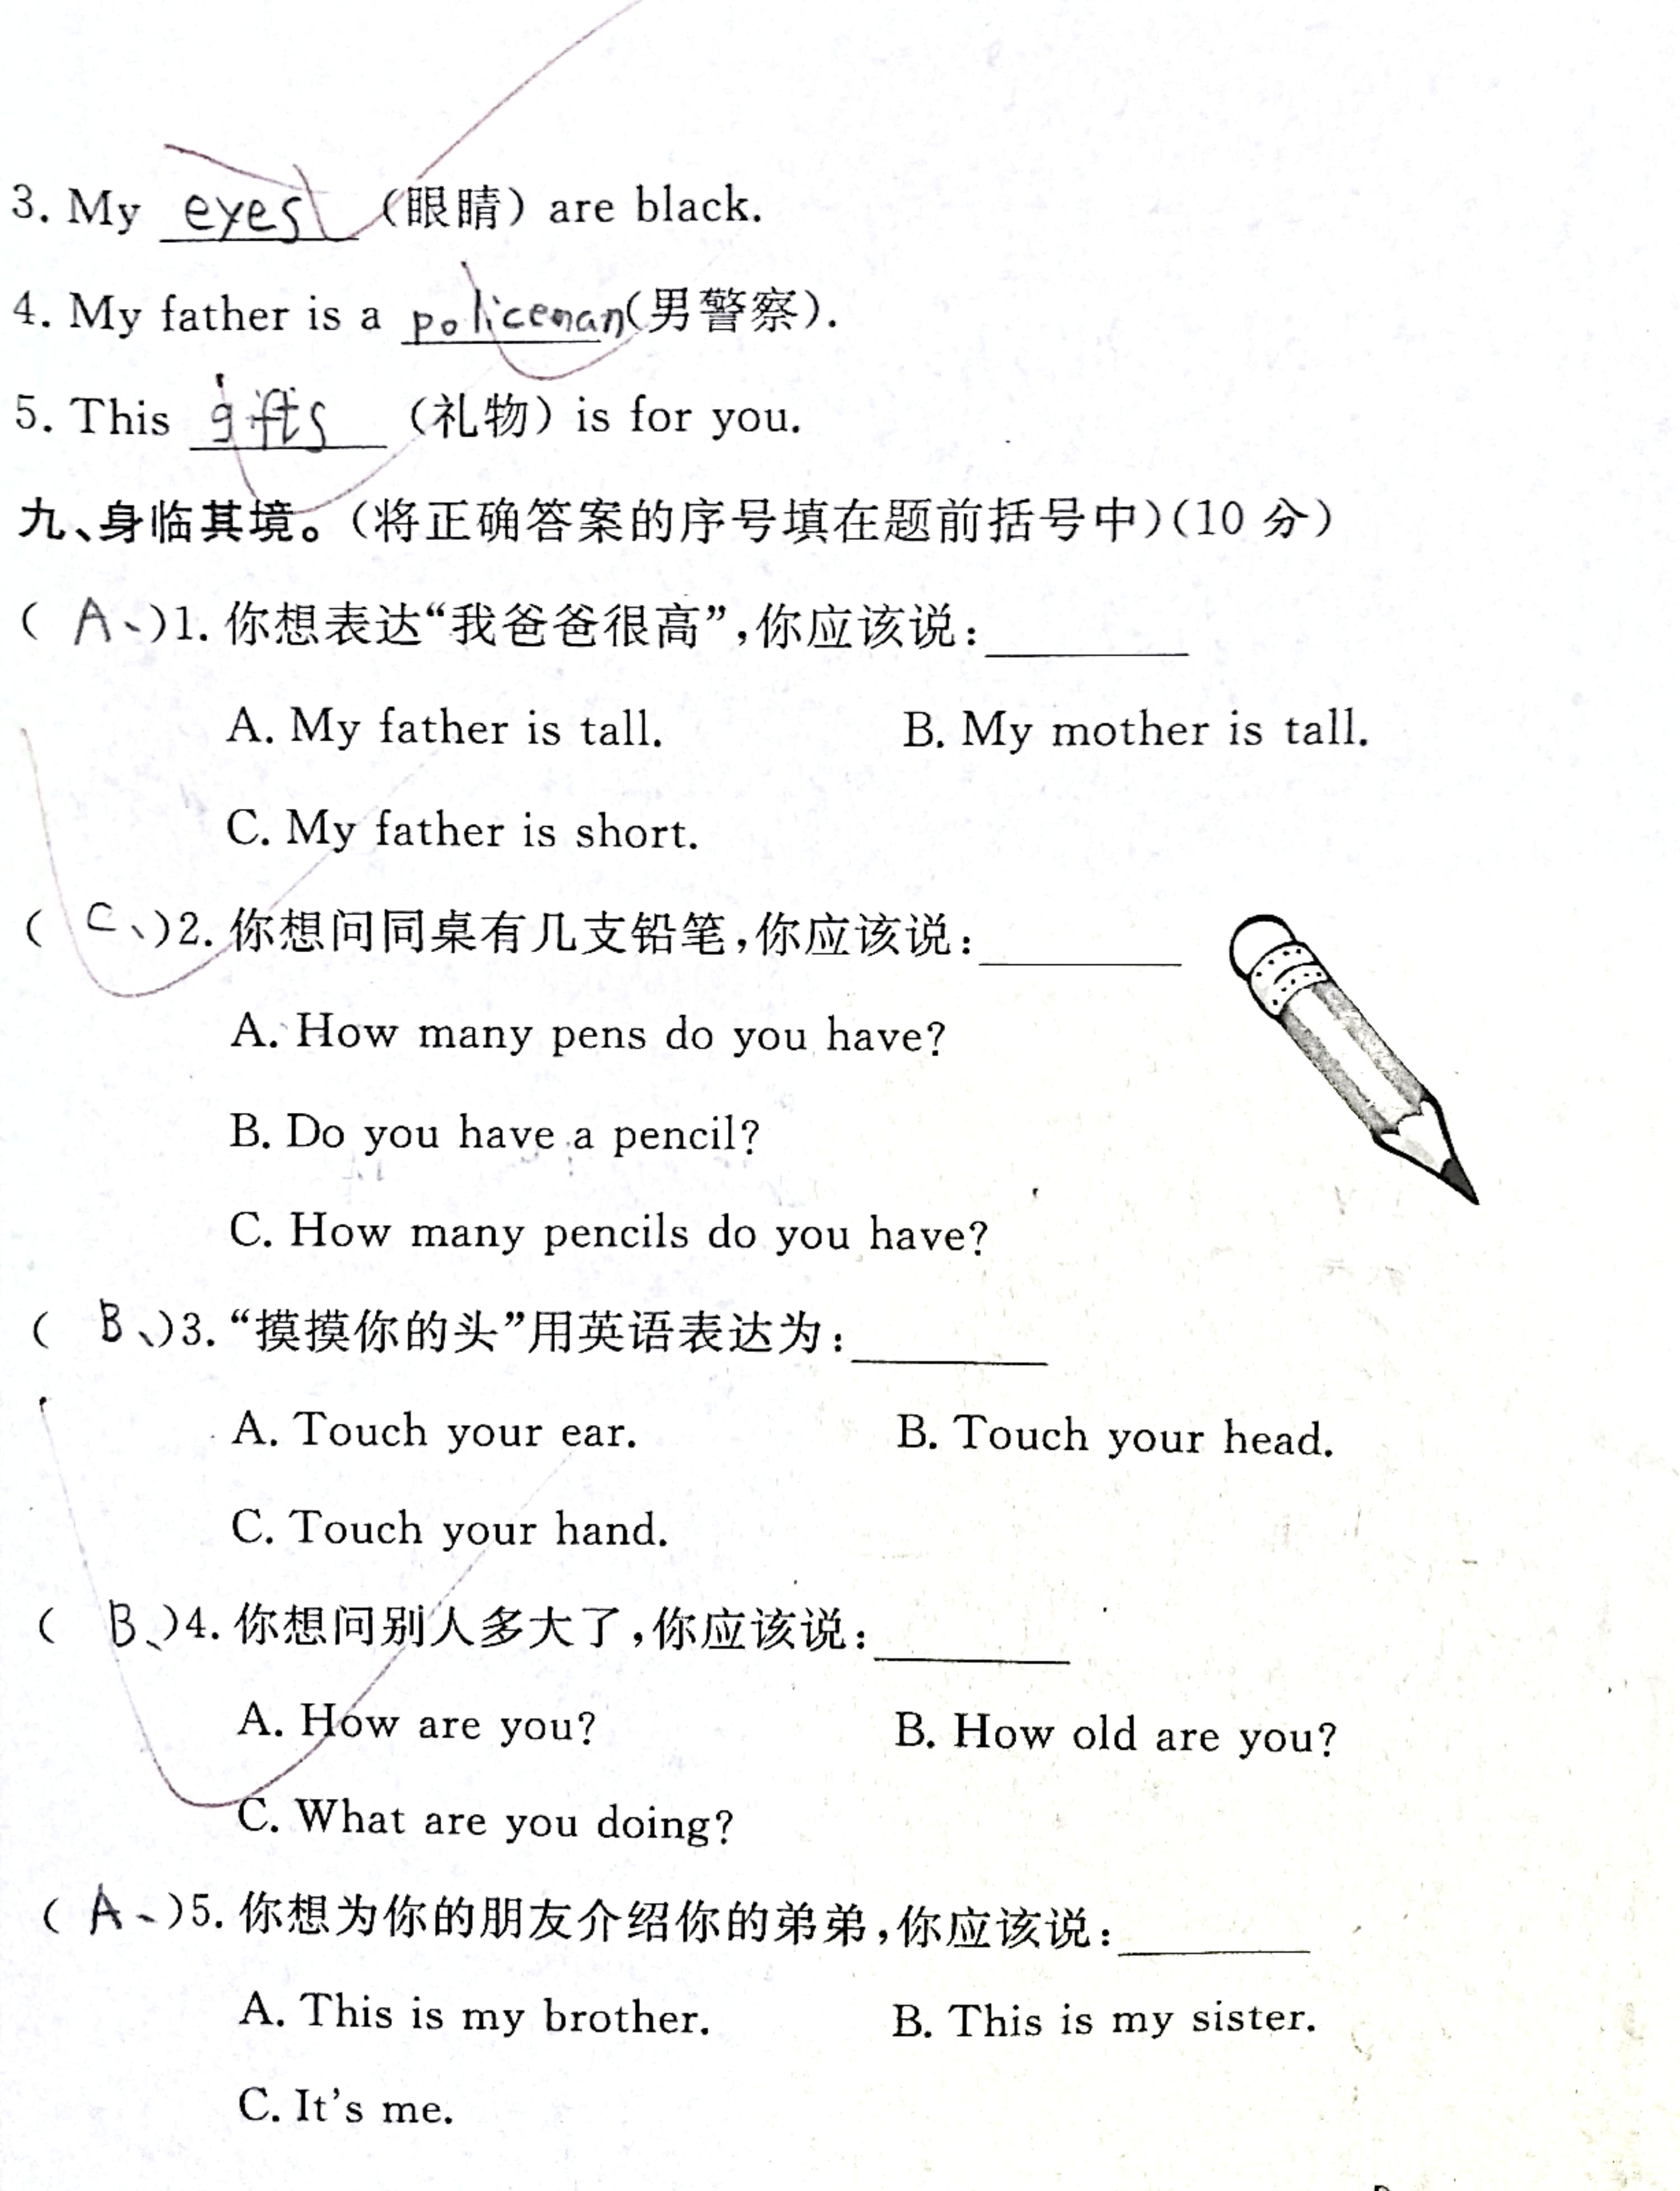 3. My eyes (眼睛) are black.
4. My father is a policeman(男警察).
5. This gifts (礼物) is for you.
九、身临其境。(将正确答案的序号填在题前括号中)(10 分)
( A、)1. 你想表达“我爸爸很高”,你应该说:________
A. My father is tall. B. My mother is tall.
C. My father is short.
( C、)2. 你想问同桌有几支铅笔,你应该说:________
A. How many pens do you have?
B. Do you have a pencil?
C. How many pencils do you have?
( B、)3. “摸摸你的头”用英语表达为:________
A. Touch your ear. B. Touch your head.
C. Touch your hand.
( B、)4. 你想问别人多大了,你应该说:________
A. How are you? B. How old are you?
C. What are you doing?
( A、)5. 你想为你的朋友介绍你的弟弟,你应该说:________
A. This is my brother. B. This is my sister.
C. It's me.